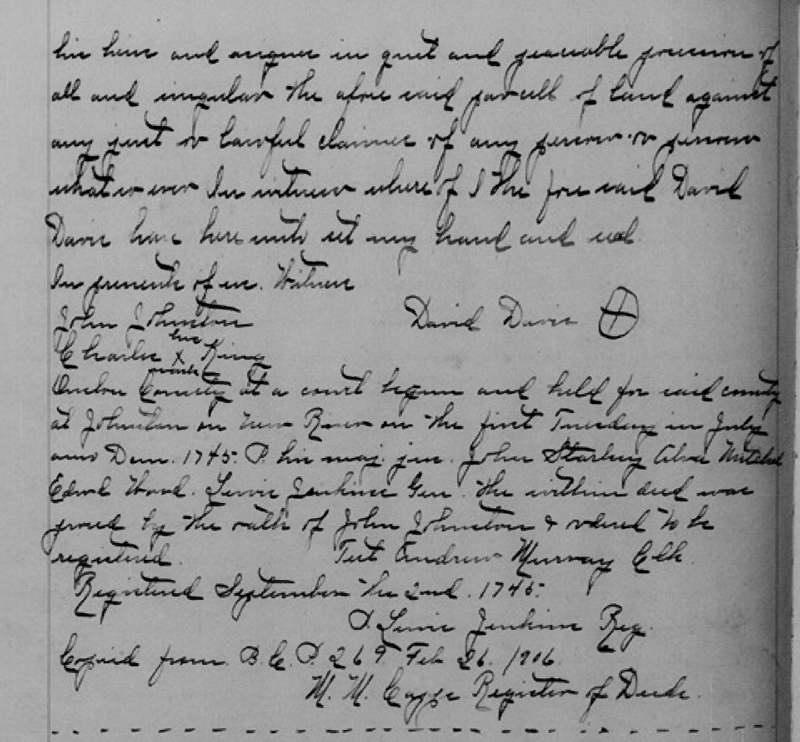 his heirs and assignes in quet and peaseable possession of
all and singular the afore said parcell of land against
any just or lawful claimes of any person or persons
what so ever In witness where of I the fore said David
Davis have here unto set my hand and seal
In presents of us. Witness
John Johnston David Davis
his
Charles X King
mark
Onslow County At a court begun and held for said county
at Johnston on New River on the first Tuesday in July
anno Dom. 1745. P. his maj. jus. John Starkey
Edwd Ward. Lewis Jenkins Gen. the within deed was
proved by the oath of John Johnston & ordered to be
registered. Test Andrew Murray Clk.
Registered September the 2nd. 1745.
P. Lewis Jenkins Reg.
Copied from B. C. P. 269 Feb 26. 1906
M. M. Capps Register of Deeds.